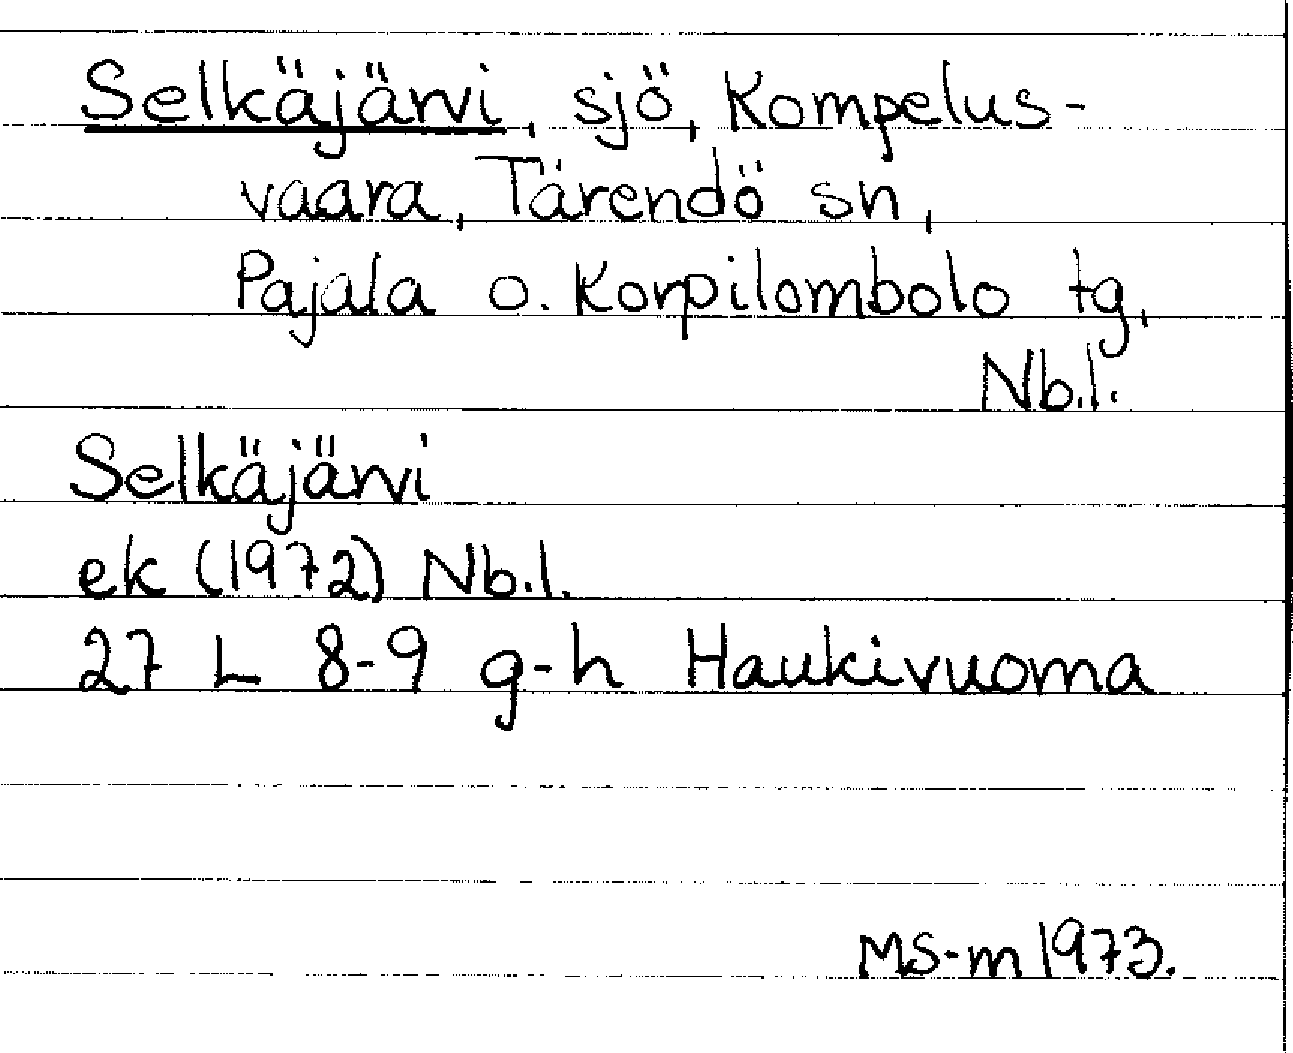 Selkäjärvi, sjö, Kompelus-
vaara, Tärendö sn,
Pajala o. Korpilombolo tg,
Nb.l.
Selkäjärvi
ek (1972) Nb.l.
27 L 8-9 g-h Haukivuoma
MS-m 1973.